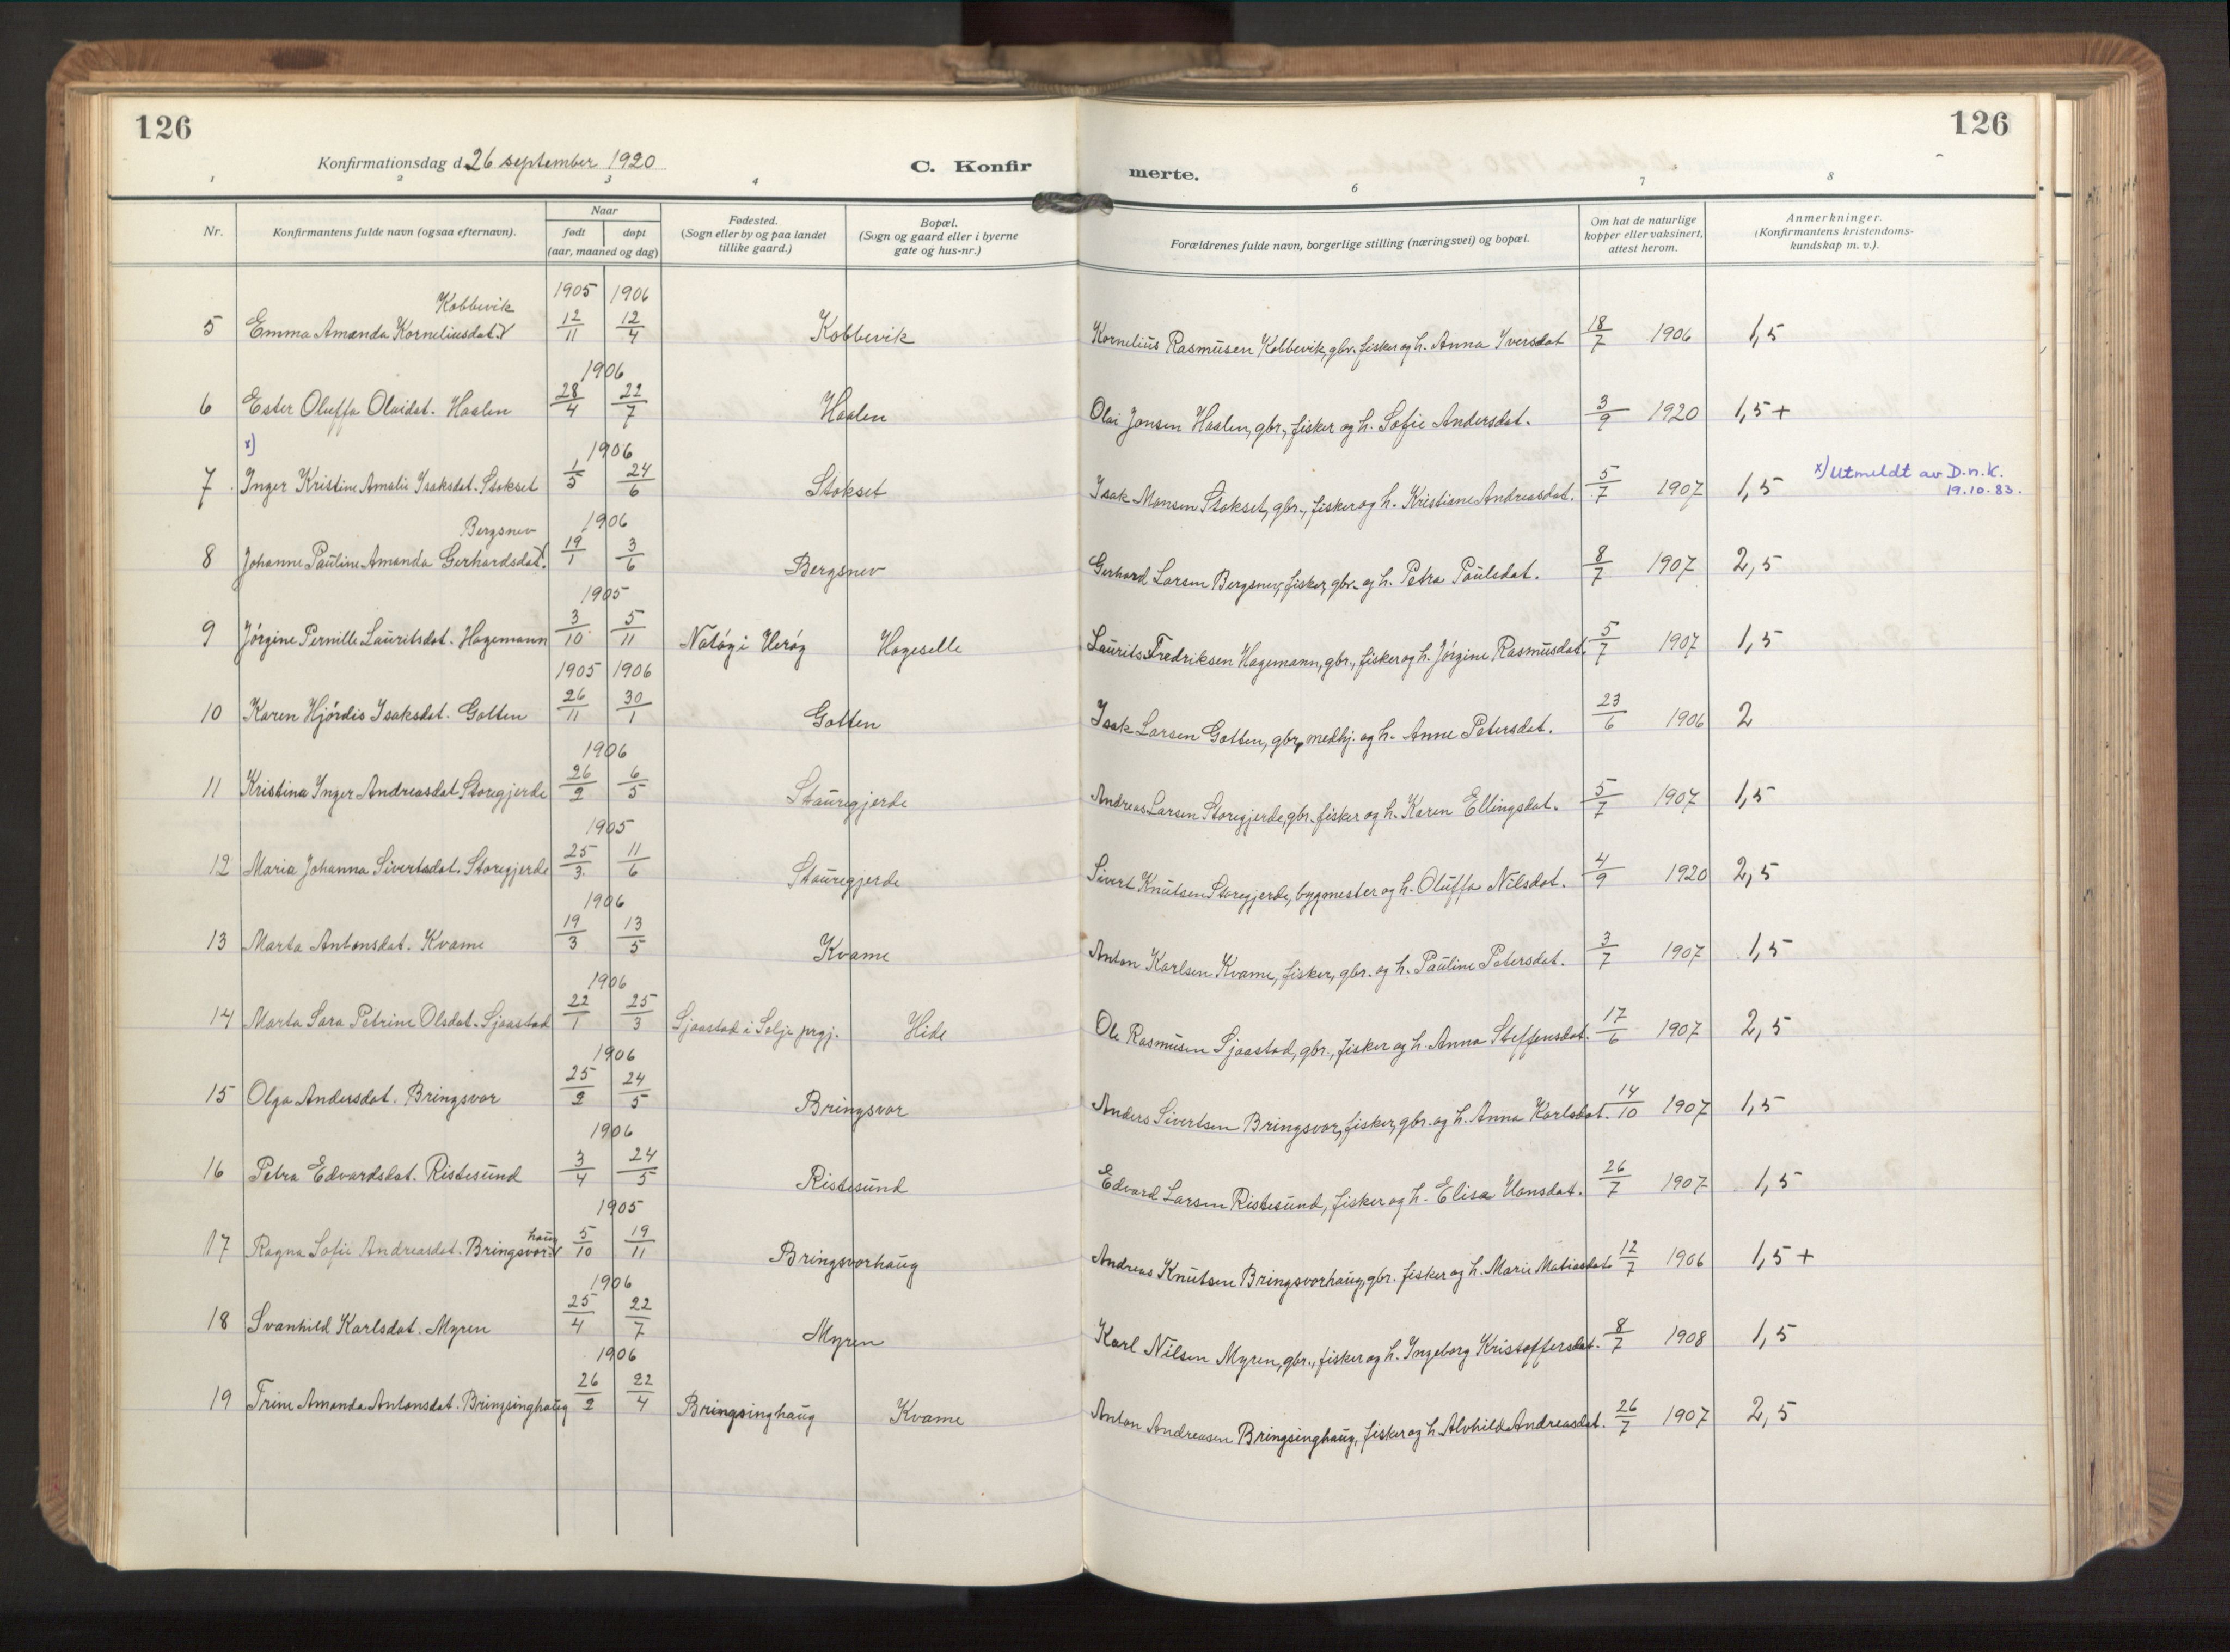 126
126
Konfirmationsdag d. 26 september 1920
C. Konfirmerte.
1 2 3 4 6 7 8
Nr.
Konfirmantens fulde navn (ogsaa efternavn).
Naar
født døpt
(aar, maaned og dag)
Fødested.
(Sogn eller by og paa landet
tillike gaard.)
Bopæl.
(Sogn og gaard eller i byerne
gate og hus-nr.)
Forældrenes fulde navn, borgerlige stilling (næringsvei) og bopæl.
Om hat de naturlige
kopper eller vaksinert,
attest herom.
Anmerkninger.
(Konfirmantens kristendoms-
kundskap m. v.).
Kobbevik 1905 1906
5 Emma Amanda Korneliusdat. 12/11 12/4 Kobbevik Kornelius Rasmusen Kobbevik, gbr. fisker og h. Anna Iversdat 18/7 1906 1,5
1906
6 Ester Oluffa Olaidat. Haalen 28/4 22/7 Haalen Olai Jonsen Haalen, gbr., fisker og h. Sofie Andersdat. 3/9 1920 1,5 +
x) 1906
7 Inger Kristine Amalie Isaksdat. Stokset 1/5 24/6 Stokset Isak Monsen Stokset, gbr., fisker og h. Kristiane Andreasdat. 5/7 1907 1,5 x) Utmeldt av D.n.K.
19.10.83.
Bergsnev 1906
8 Johanne Pauline Amanda Gerhardsdat. 19/1 3/6 Bergsnev Gerhard Larsen Bergsnev, fisker, gbr. og h. Petra Paulsdat. 8/7 1907 2,5
1905
9 Jórgine Pernille Lauritsdat. Hagemann 3/10 5/11 Nótóg i Heróg Hageselle Laurits Fredriksen Hagemann, gbr., fisker og h. Jórgine Rasmusdat. 5/7 1907 1,5
1905 1906
10 Karen Hjórdis Isaksdat. Gotten 26/11 30/1 Gotten Isak Larsen Gotten, gbr., medhj. og h. Anne Petersdat. 23/6 1906 2
1906
11 Kristina Inger Andreasdat. Storegjerde 26/2 6/5 Stauregjerde Andreas Larsen Storegjerde, gbr. fisker og h. Karen Ellingsdat. 5/7 1907 1,5
1905
12 Maria Johanna Sivertsdat. Storegjerde 25/3 11/6 Stauregjerde Sivert Knutsen Storegjerde, bygmester og h. Oluffa Nilsdat. 4/9 1920 2,5
1906
13 Marta Antonsdat. Kvame 19/3 13/5 Kvame Anton Karlsen Kvame, fisker, gbr. og h. Pauline Petersdat. 3/7 1907 1,5
1906
14 Marta Sara Petrine Olsdat. Sjaastad 22/1 25/3 Sjaastad i Selje prgj. Hide Ole Rasmusen Sjaastad, gbr., fisker og h. Anna Steffensdat. 17/6 1907 2,5
1906
15 Olga Andersdat. Bringsvor 25/2 24/5 Bringsvor Anders Sivertsen Bringsvor, fisker, gbr. og h. Anna Karlsdat. 14/10 1907 1,5
1906
16 Petra Edvardsdat. Ristesund 3/4 24/5 Ristesund Edvard Larsen Ristesund, fisker og h. Elisa Hansdat. 26/7 1907 1,5
1905
haug
17 Ragna Sofie Andreasdat. Bringsvor 5/10 19/11 Bringsvorhaug Andreas Knutsen Bringsvorhaug, gbr. fisker og h. Marie Matiasdat. 12/7 1906 1,5 +
1906
18 Svanhild Karlsdat. Myren 25/4 22/7 Myren Karl Nilsen Myren, gbr., fisker og h. Ingeborg Kristoffersdat. 8/7 1908 1,5
1906
19 Trine Amanda Antonsdat. Bringsinghaug 26/2 22/4 Bringsinghaug Kvame Anton Andreasen Bringsinghaug, fisker og h. Alvhilde Andreasdat. 26/7 1907 2,5